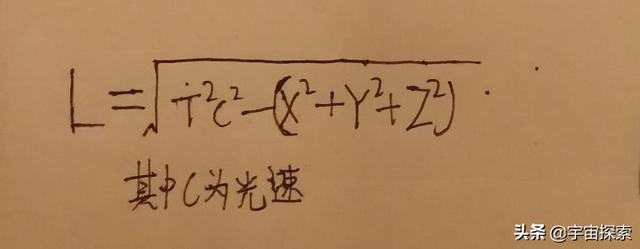 L=√(T²C²-(X²+Y²+Z²))
其中C为光速
头条 @宇宙探索